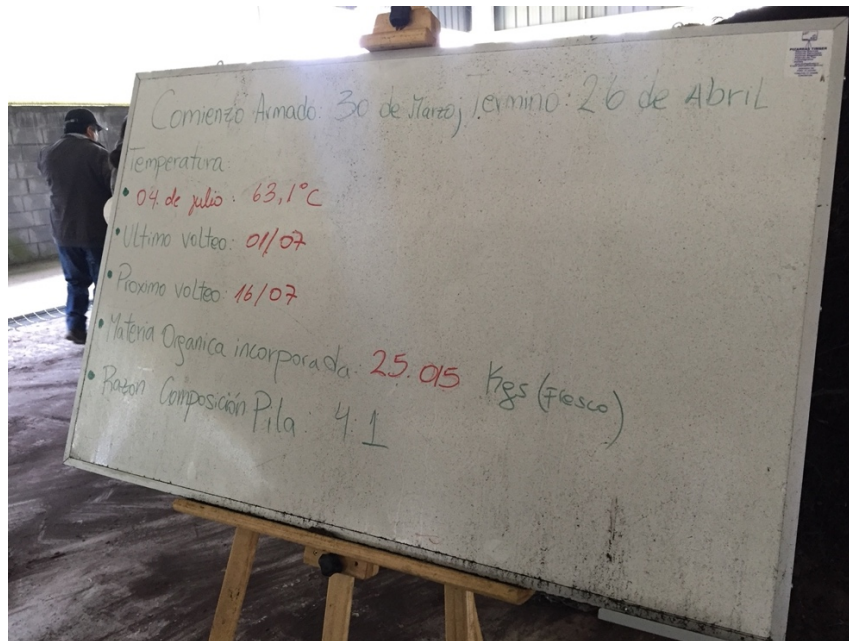 Comienzo Armado: 30 de Marzo; Termino: 26 de Abril
Temperatura:
• 04 de julio: 63,1°C
• Ultimo volteo: 01/07
• Proximo volteo: 16/07
• Materia Organica incorporada: 25.015 Kgs (Fresco)
• Razon Composición Pila: 4:1